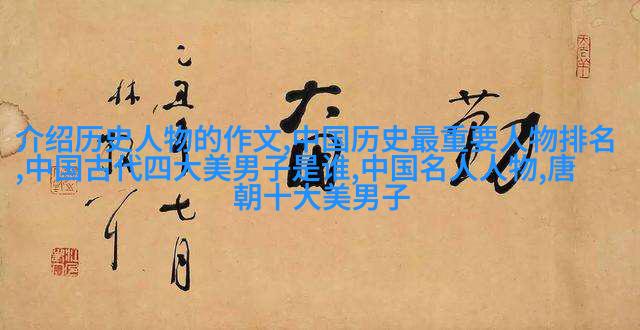 介绍历史人物的作文,中国历史最重要人物排名
,中国古代四大美男子是谁,中国名人人物,唐
朝十大美男子
勤奋
乙丑年七月
林散耳